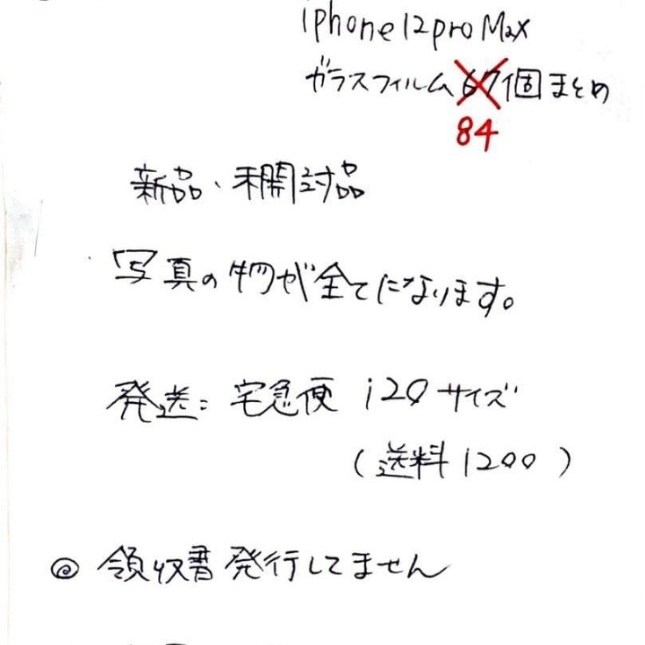 iphone12proMax
ガラスフィルム67個まとめ
84
新品、未開封品
写真の物が全てになります。
発送: 宅急便 120サイズ
(送料1200)
◎ 領収書発行してません